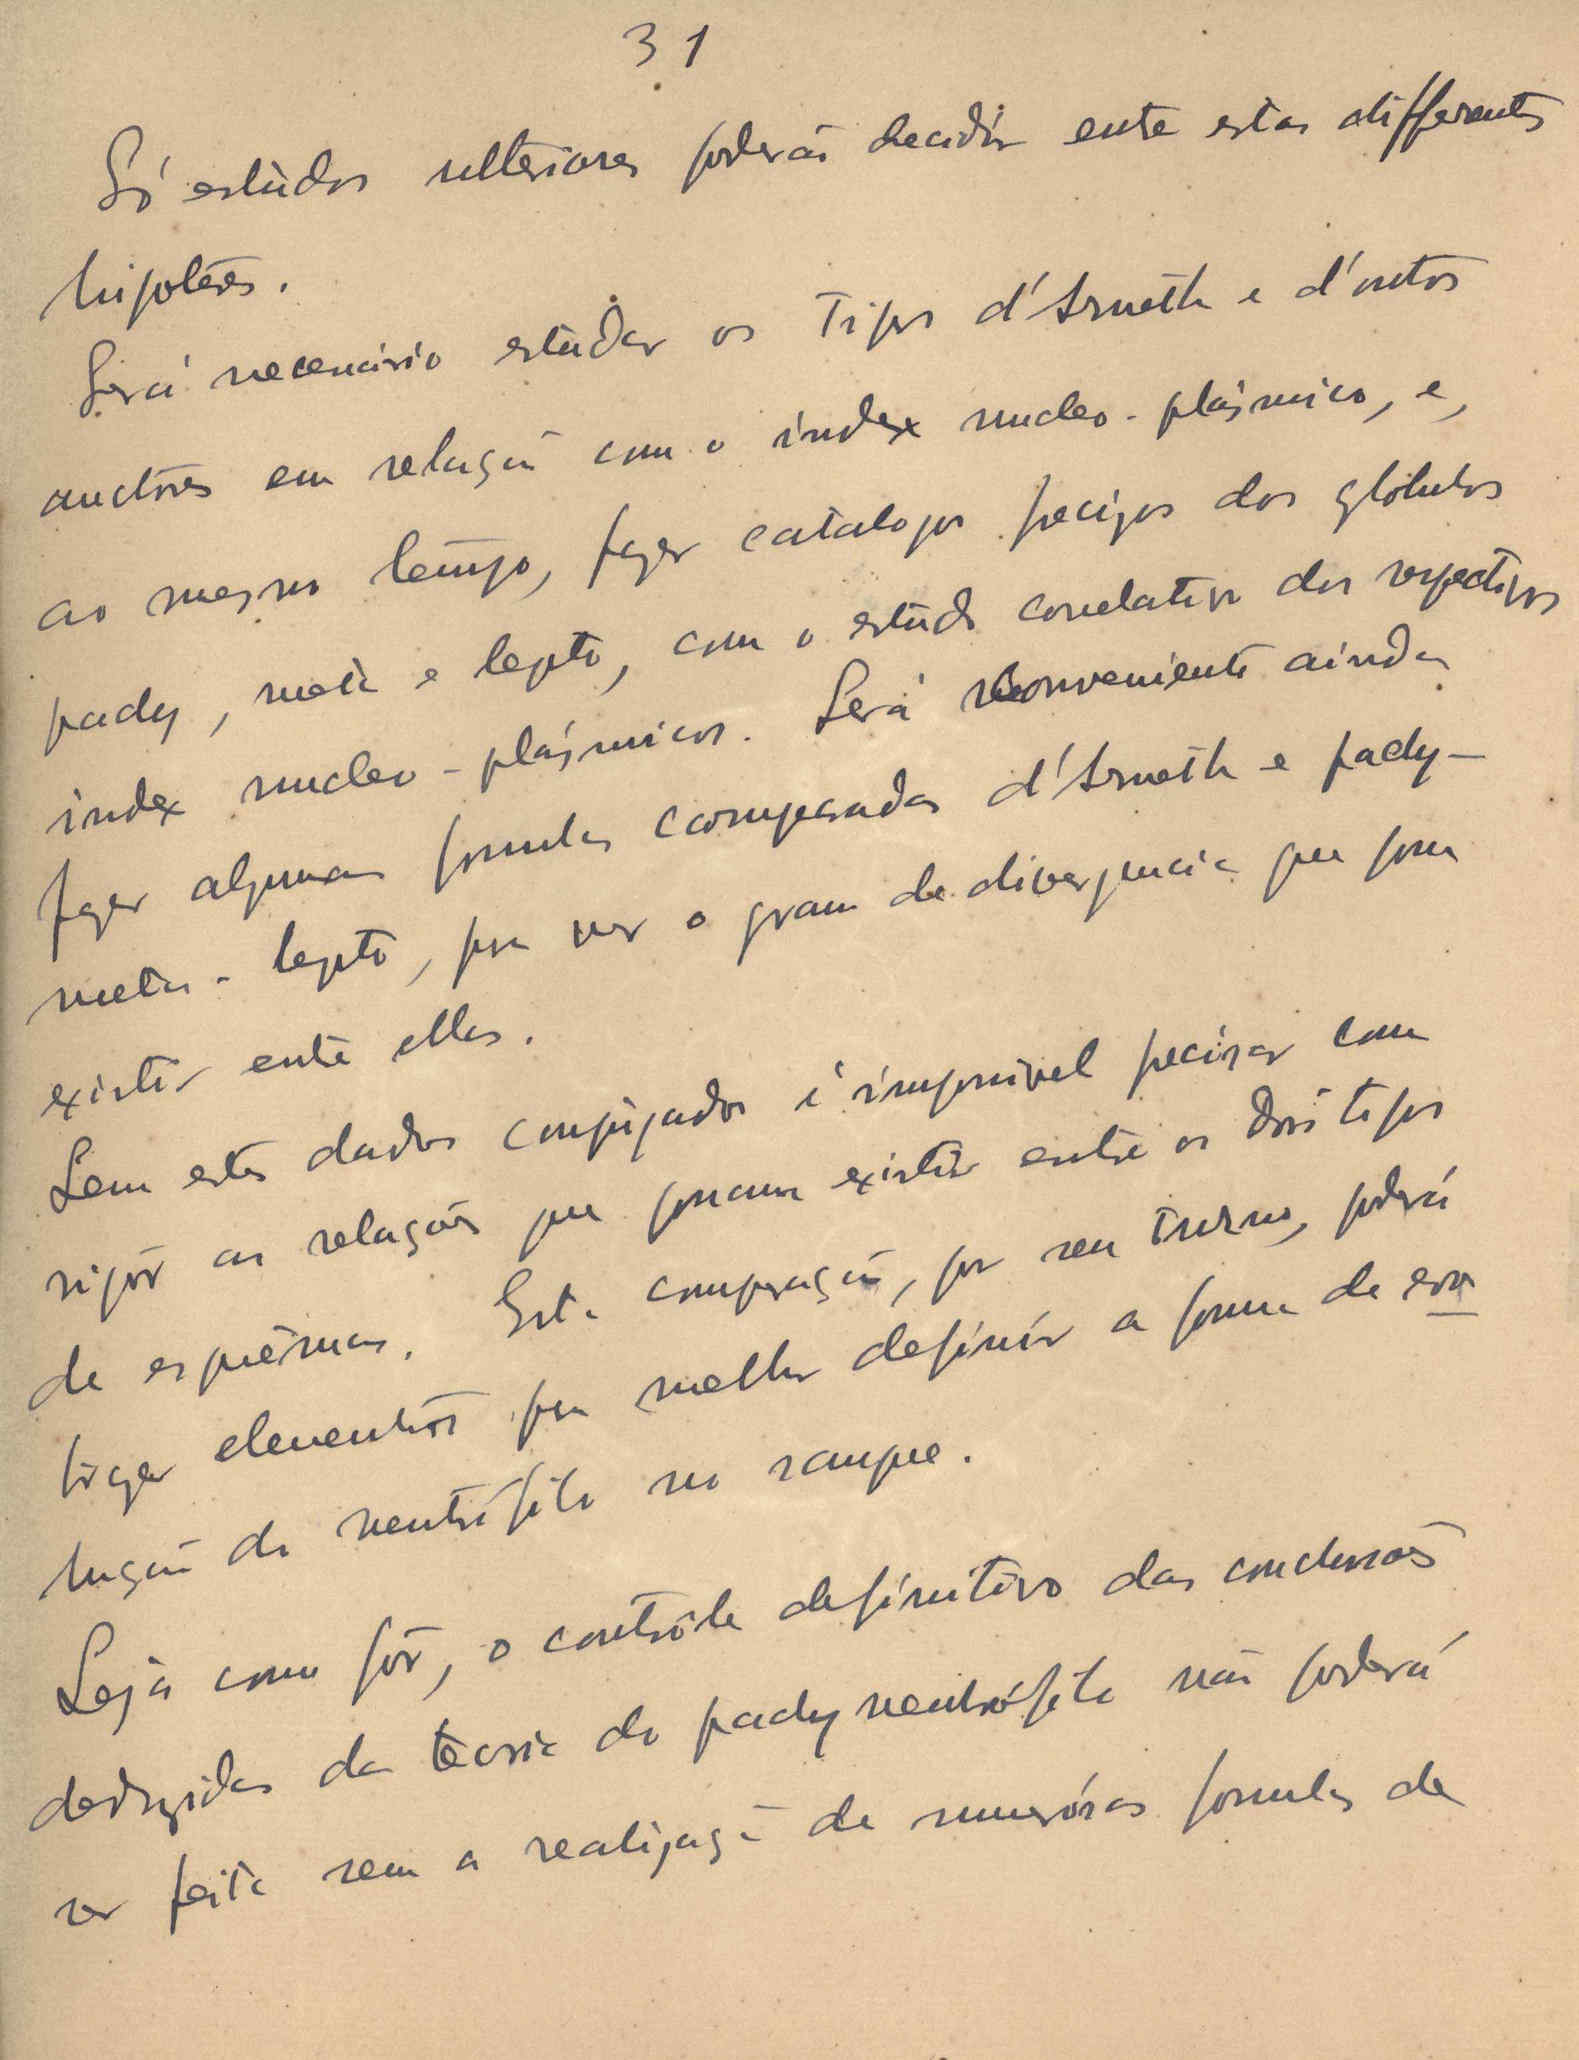 31
Só estudos ulteriores poderão decidir entre estas differentes
hipoteses.
Será necessário estudar os tipos d'Arneth e d'outros
auctores em relação com o índex nucleo-plásmico, e,
ao mesmo tempo, fazer catalogos precizos dos glóbulos
pachy, meta e lepto, com o estudo correlativo dos respectivos
index nucleo-plásmicos. Será conveniente ainda
fazer algumas formulas comparadas d'Arneth e pachy-
meta-lepto, para ver o grau de divergencia que possa
existir entre ellas.
Sem estes dados conjugados é impossivel precizar com
rigôr as relações que possam existir entre os dois tipos
de esquêmas. Esta comparação, por seu turno, poderá
trazer elementos para melhor definir a forma de evo
lução do neutrófilo no sangue.
Seja como fôr, o contrôle definitivo das conclusões
deduzidas da teoria do pachyneutrófilo não poderá
ser feito sem a realização de numerósas formulas de